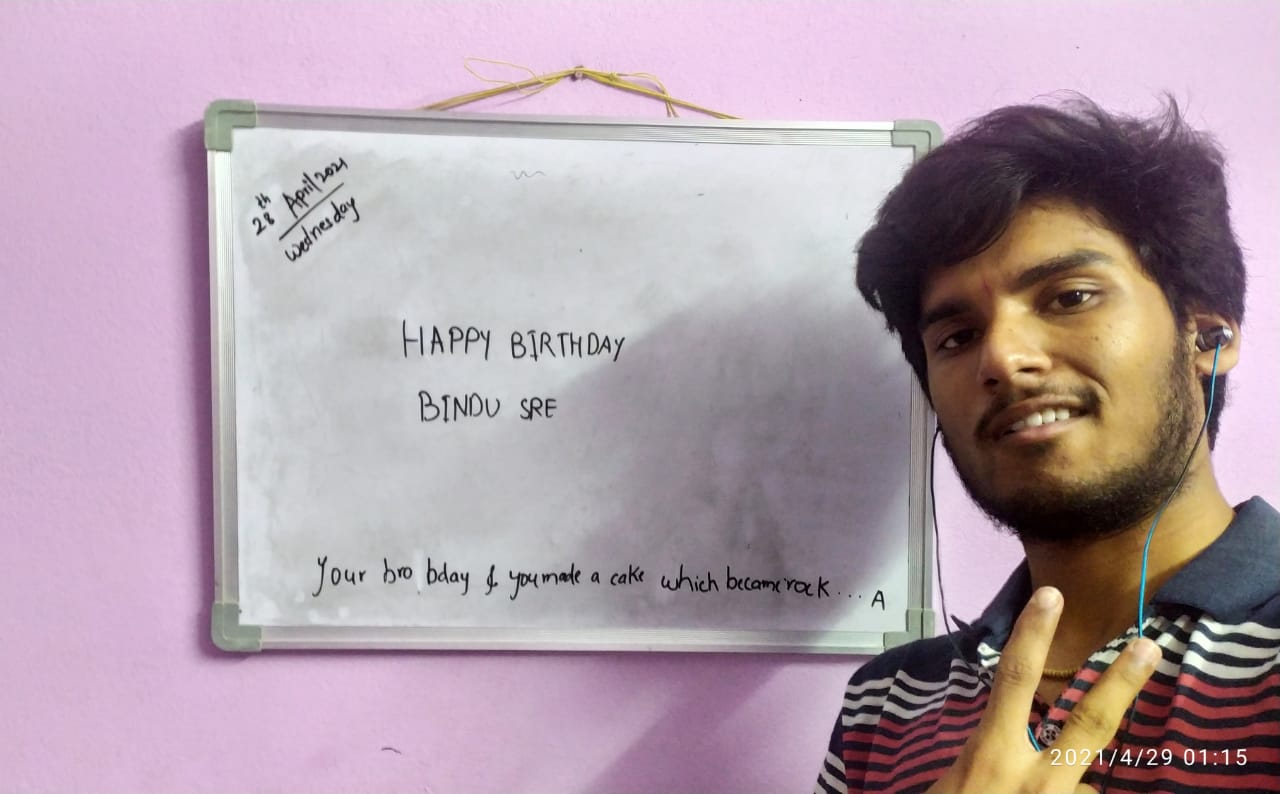 28th April 2021
Wednesday
HAPPY BIRTHDAY
BINDU SRE
Your bro bday & you made a cake which became rock... A
2021/4/29 01:15